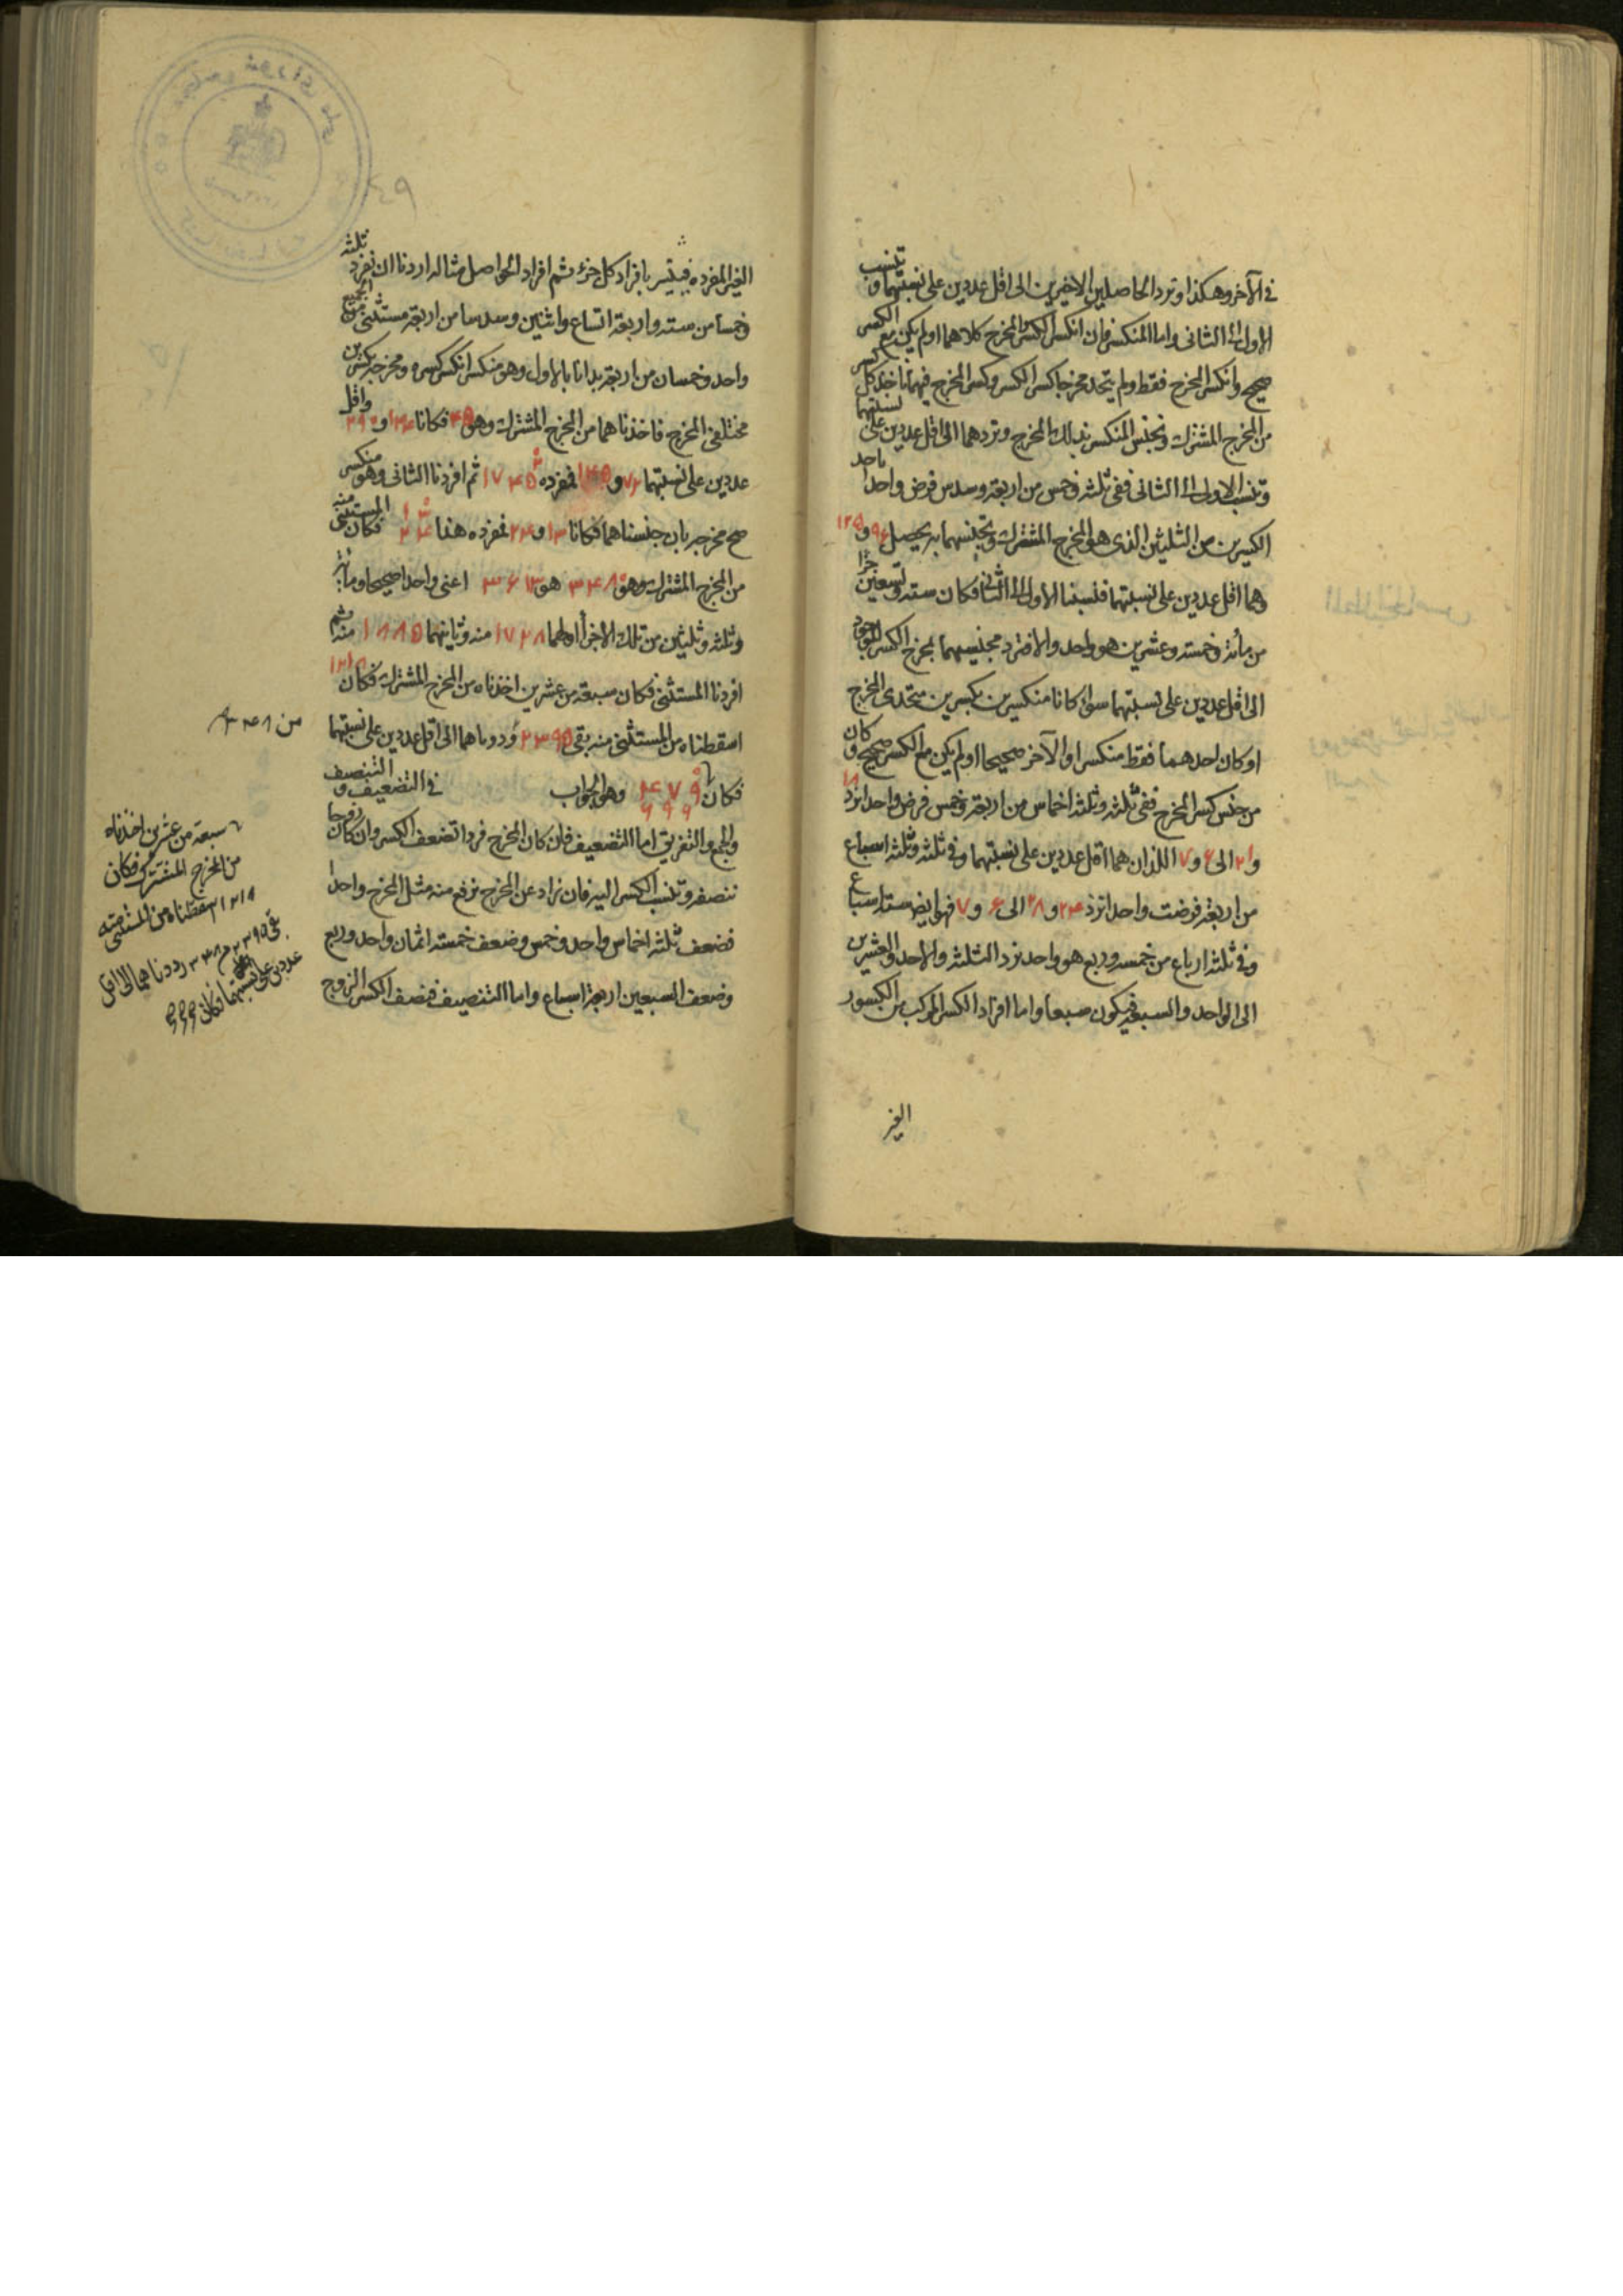 في الآخر وهكذا ونرد الحاصلين الاخيرين الى اقل عددين على نسبتهما وننسب
الاول الى الثاني واما المنكسر فان انكسر الكسر والمخرج كلاهما او لم يكن مع الكسر
صحيح وانكسر المخرج فقط ولم يتحد مخرجا كسر الكسر وكسر المخرج فيهما ناخذ كل كسر
من المخرج المشترك ونجنس المنكسر بذلك المخرج ونردهما الى اقل عددين على نسبتهما
وننسب الاول الى الثاني ففي ثلثه وخمس من اربعة وسدس فرض واحدا ناخذ
الكسرين من الثلثين الذي هو المخرج المشترك ونجنسهما به يحصل ٩۶ و ١٢۵
وهما اقل عددين على نسبتهما فنسبنا الاول الى الثاني فكان ستة وتسعين جزءا
من مائة وخمسة وعشرين هو واحد والا فنرد مجنسيهما بمخرج الكسر الموجود
الى اقل عددين على نسبتهما سواء كانا منكسرين بكسرين متحدى المخرج
او كان احدهما فقط منكسرا والآخر صحيحا او لم يكن مع الكسر صحيح وكان
من جنس كسر المخرج ففي ثلثه وثلثه اخماس من اربعة وخمس فرض واحدا نرد ١٨
و ٢١ الى ۶ و ٧ اللذان هما اقل عددين على نسبتهما وفي ثلثه وثلثه اسباع
من اربعة فرضت واحدا نرد ٢۴ و ٢٨ الى ۶ و ٧ فهو ايضا ستة اسباع
وفي ثلثة ارباع من خمسة وربع هو واحد نرد الثلثة والاحد والعشرين
الى الواحد والسبعة فيكون سبعا واما افراد الكسر المركب من الكسور
الغير
٤٩
الغير المفردة فيتيسر بافراد كل جزء ثم افراد الحواصل مثاله اردنا ان نفرد ثلثة
وخمسا من ستة واربعة اتساع واثنين وسدسا من اربعة مستثنى من الجميع
واحد وخمسان من اربعة بدانا بالاول وهو منكسر انكسر كسره ومخرجه بكسرين
مختلفي المخرج فاخذناهما من المخرج المشترك وهو ۴۵ فكانا ١۴۴ و ٢٩٠ واقل
عددين على نسبتهما ٧٢ و ١۴۵ فمفرده ٧٢ ١۴۵ ثم افردنا الثاني وهو منكسر
صح مخرجه بان جنسناهما فكانا ١٣ و ٢۴ فمفرده هذا ١٣ ٢۴ فكان المستثنى منه
من المخرج المشترك وهو ٣۴٨٠ هو ٣۶١٣ اعني واحدا صحيحا ومائة
وثلثة وثلثين من تلك الاجزاء اولهما ١٧٢٨ منه وثانيهما ١٨٨۵ منه ثم
افردنا المستثنى فكان سبعة من عشرين اخذناه من المخرج المشترك فكان ١٢١٨
اسقطناه من المستثنى منه بقي ٢٣٩۵ ورددناهما الى اقل عددين على نسبتهما
فكان ۴٧٩ ۶٩۶ وهو الجواب في التضعيف والتنصيف
والجمع والتفريق اما التضعيف فان كان المخرج فردا تضعف الكسر وان كان زوجا
ننصفه وتنسب الكسر اليه فان زاد عن المخرج نرفع منه مثل المخرج واحدا
فضعف ثلثه اخماس واحد وخمس وضعف خمسة اثمان واحد وربع
وضعف السبعين اربعة اسباع واما التنصيف فنصف الكسر الزوج
من ٣۴٨٠
سبعة من عشرين اخذناه
من المخرج المشترك فكان
١٢١٨ اسقطناه من المستثنى منه
بقي ٢٣٩۵ من ٣۴٨٠ رددناهما الى اقل
عددين على نسبتهما فكان